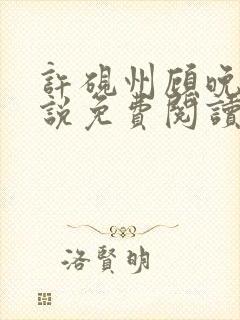 許硯州顧晚
說免費閱讀
洛賢明